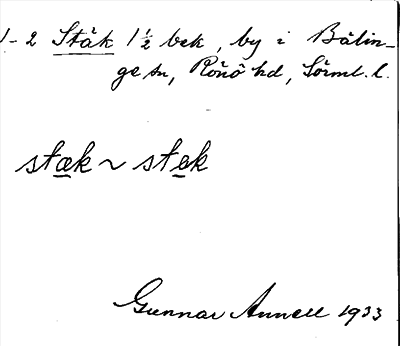 1-2 Stäk 1½ bek, by i Bälin-
ge sn, Rönö hd, Sörml. l.
stæk ~ stek
Gunnar Annell 1933